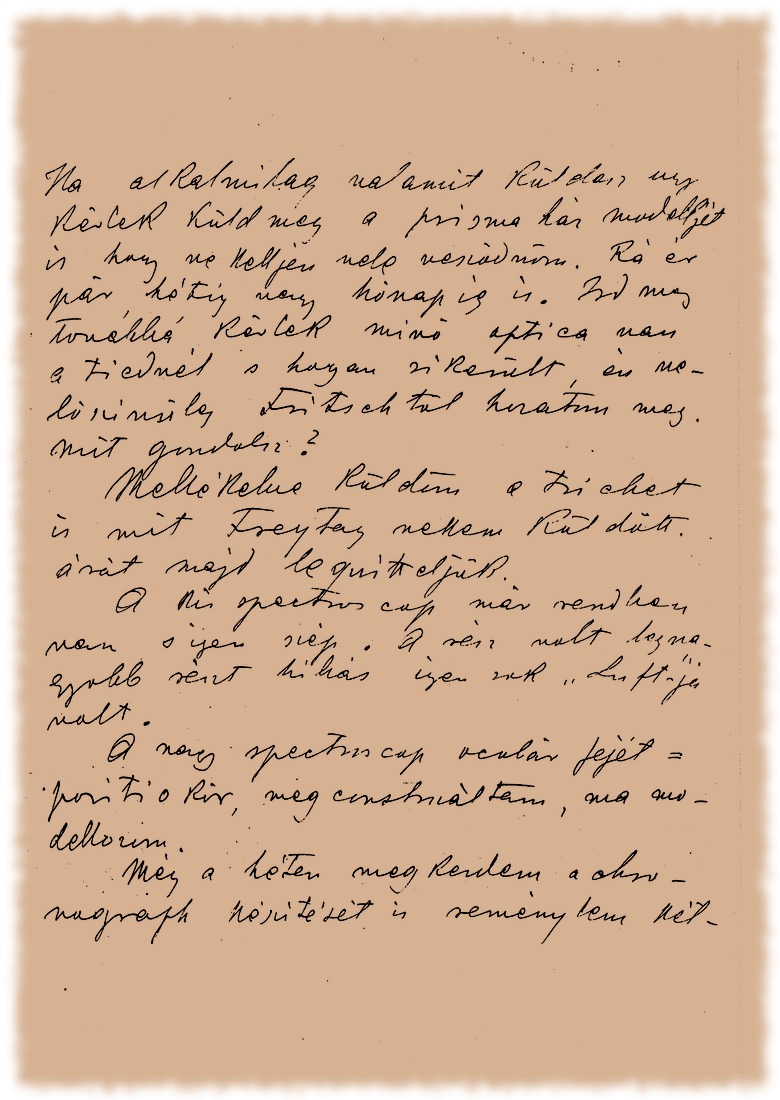 Ha alkalmilag valamit küldesz ugy
kérlek küld meg a prisma ház modelljét
is hogy ne kelljen vele vesződnöm. Rá ér
pár hétig vagy hónapig is. Ird meg
továbbá kérlek minő optica van
a tiednél s hogyan sikerült, én va-
lószinüleg Fritschtől hozatom meg.
mit gondolsz?
Mellékelve küldöm a
is mit Freytag nekem küldött.
árát majd le quitteljük.
A kis spectroscop már rendben
van s igen szép. A réz volt legna-
gyobb részt hibás igen sok „Luft"-ja
volt.
A nagy spectroscop oculár fejét =
positio kör, megconstruáltam, ma mo-
dellozom.
Még a héten megkezdem a chro-
nograph készitését is reménylem két-